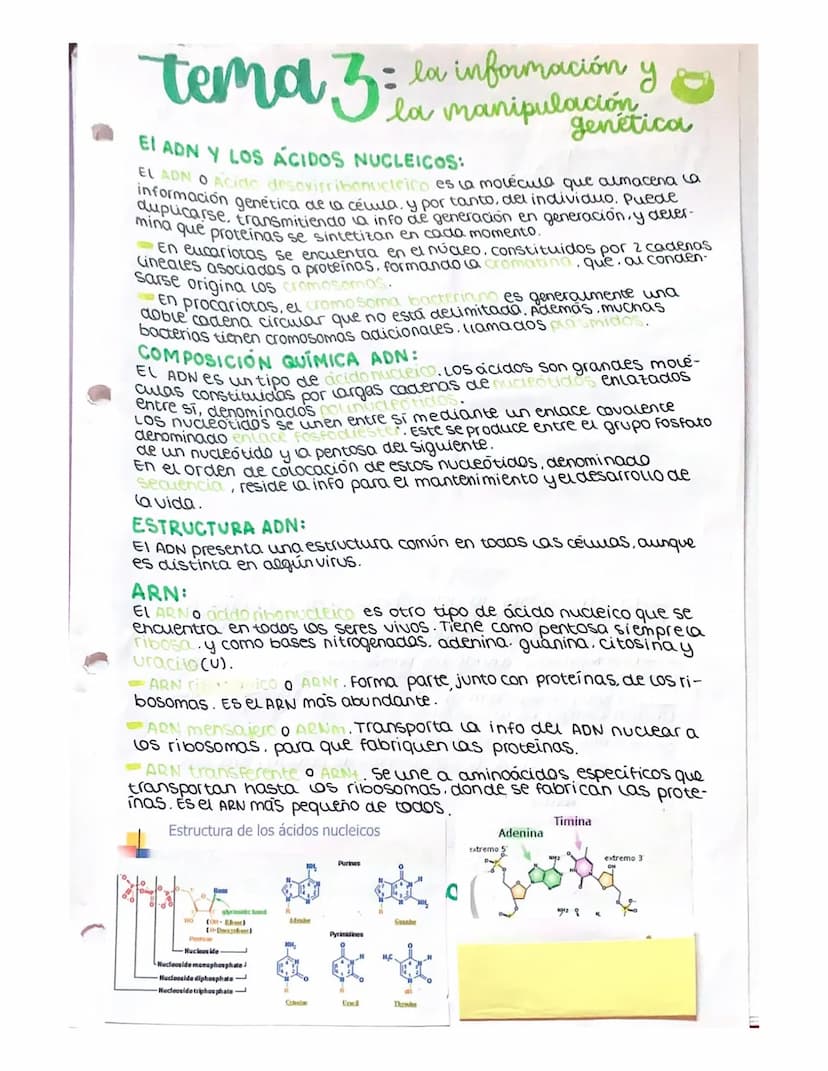 tema 3: la información y
la manipulación
genética
El ADN Y LOS ÁCIDOS NUCLEICOS:
EL ADN O Ácido desoxirribonucleico es la molécula que almacena la
información genética de la célula, y por tanto, del individuo. Puede
duplicarse, transmitiendo la info de generación en generación, y deter-
mina que proteínas se sintetizan en cada momento.
- En eucariotas se encuentra en el núcleo, constituidos por 2 cadenas
lineales asociadas a proteínas, formando la cromatina, que, al conden-
sarse origina los cromosomas.
- En procariotas, el cromosoma bacteriano es generalmente una
doble cadena circular que no está delimitada. Además, muchas
bacterias tienen cromosomas adicionales, llamados plásmidos.
COMPOSICIÓN QUÍMICA ADN:
EL ADN es un tipo de ácido nucleico. Los ácidos son grandes molé-
culas constituidas por largas cadenas de nucleótidos enlazados
entre sí, denominados polinucleótidos.
Los nucleótidos se unen entre sí mediante un enlace covalente
denominado enlace fosfodiéster. Este se produce entre el grupo fosfato
de un nucleótido y la pentosa del siguiente.
En el orden de colocación de estos nucleótidos, denominado
secuencia, reside la info para el mantenimiento y el desarrollo de
la vida.
ESTRUCTURA ADN:
El ADN presenta una estructura común en todas las células, aunque
es distinta en algún virus.
ARN:
El ARN o ácido ribonucleico es otro tipo de ácido nucleico que se
encuentra en todos los seres vivos. Tiene como pentosa siempre la
ribosa, y como bases nitrogenadas, adenina, guanina, citosina y
uracilo (U).
- ARN o ARNr. Forma parte, junto con proteínas, de los ri-
bosomas. Es el ARN más abundante.
- ARN mensajero o ARNm. Transporta la info del ADN nuclear a
los ribosomas, para que fabriquen las proteínas.
- ARN transferente o ARNt. Se une a aminoácidos específicos que
transportan hasta los ribosomas, donde se fabrican las prote-
ínas. Es el ARN más pequeño de todos.
Estructura de los ácidos nucleicos
Base
glycosidic bond
HO
Pentose
Nucleoside
Nucleoside monophosphate
Nucleoside diphosphate
Nucleoside triphosphate
Purines
NH₂
Adenine
Guanine
Pyrimidines
NH₂
H₃C
Cytosine
Uracil
Thymine
Timina
Adenina
extremo 5'
extremo 3'